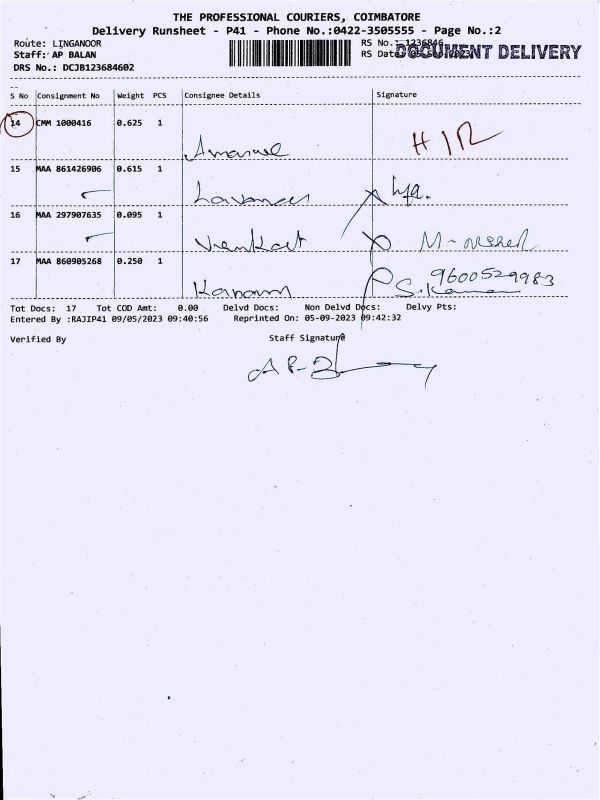 THE PROFESSIONAL COURIERS, COIMBATORE
Delivery Runsheet - P41 - Phone No.:0422-3505555 - Page No.:2
Route: LINGANOOR
RS No.: 1236846
Staff: AP BALAN
RS Date: 05 Sep 2023
DOCUMENT DELIVERY
DRS No.: DCJB123684602
S No Consignment No Weight PCS Consignee Details Signature
14 CMM 1000416 0.625 1
H/R
15 MAA 861426906 0.615 1
16 MAA 297907635 0.095 1
Venkat
17 MAA 860905268 0.250 1
9600529983
Tot Docs: 17 Tot COD Amt: 0.00 Delvd Docs: Non Delvd Docs: Delvy Pts:
Entered By :RAJIP41 09/05/2023 09:40:56 Reprinted On: 05-09-2023 09:42:32
Verified By Staff Signature